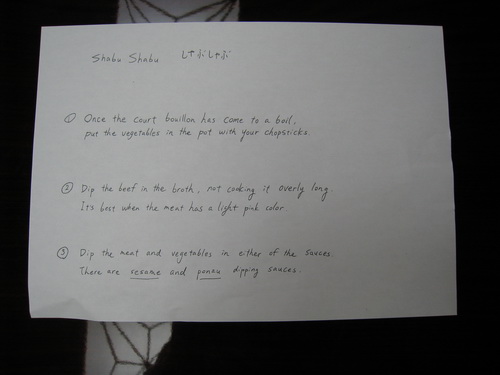 Shabu Shabu しゃぶしゃぶ
① Once the court bouillon has come to a boil,
put the vegetables in the pot with your chopsticks.
② Dip the beef in the broth, not cooking it overly long.
Its best when the meat has a light pink color.
③ Dip the meat and vegetables in either of the sauces.
There are sesame and ponzu dipping sauces.